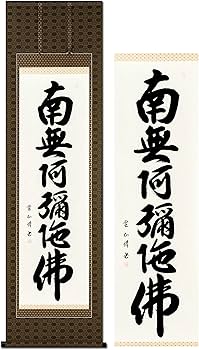 南無阿彌陀佛
南無阿彌陀佛